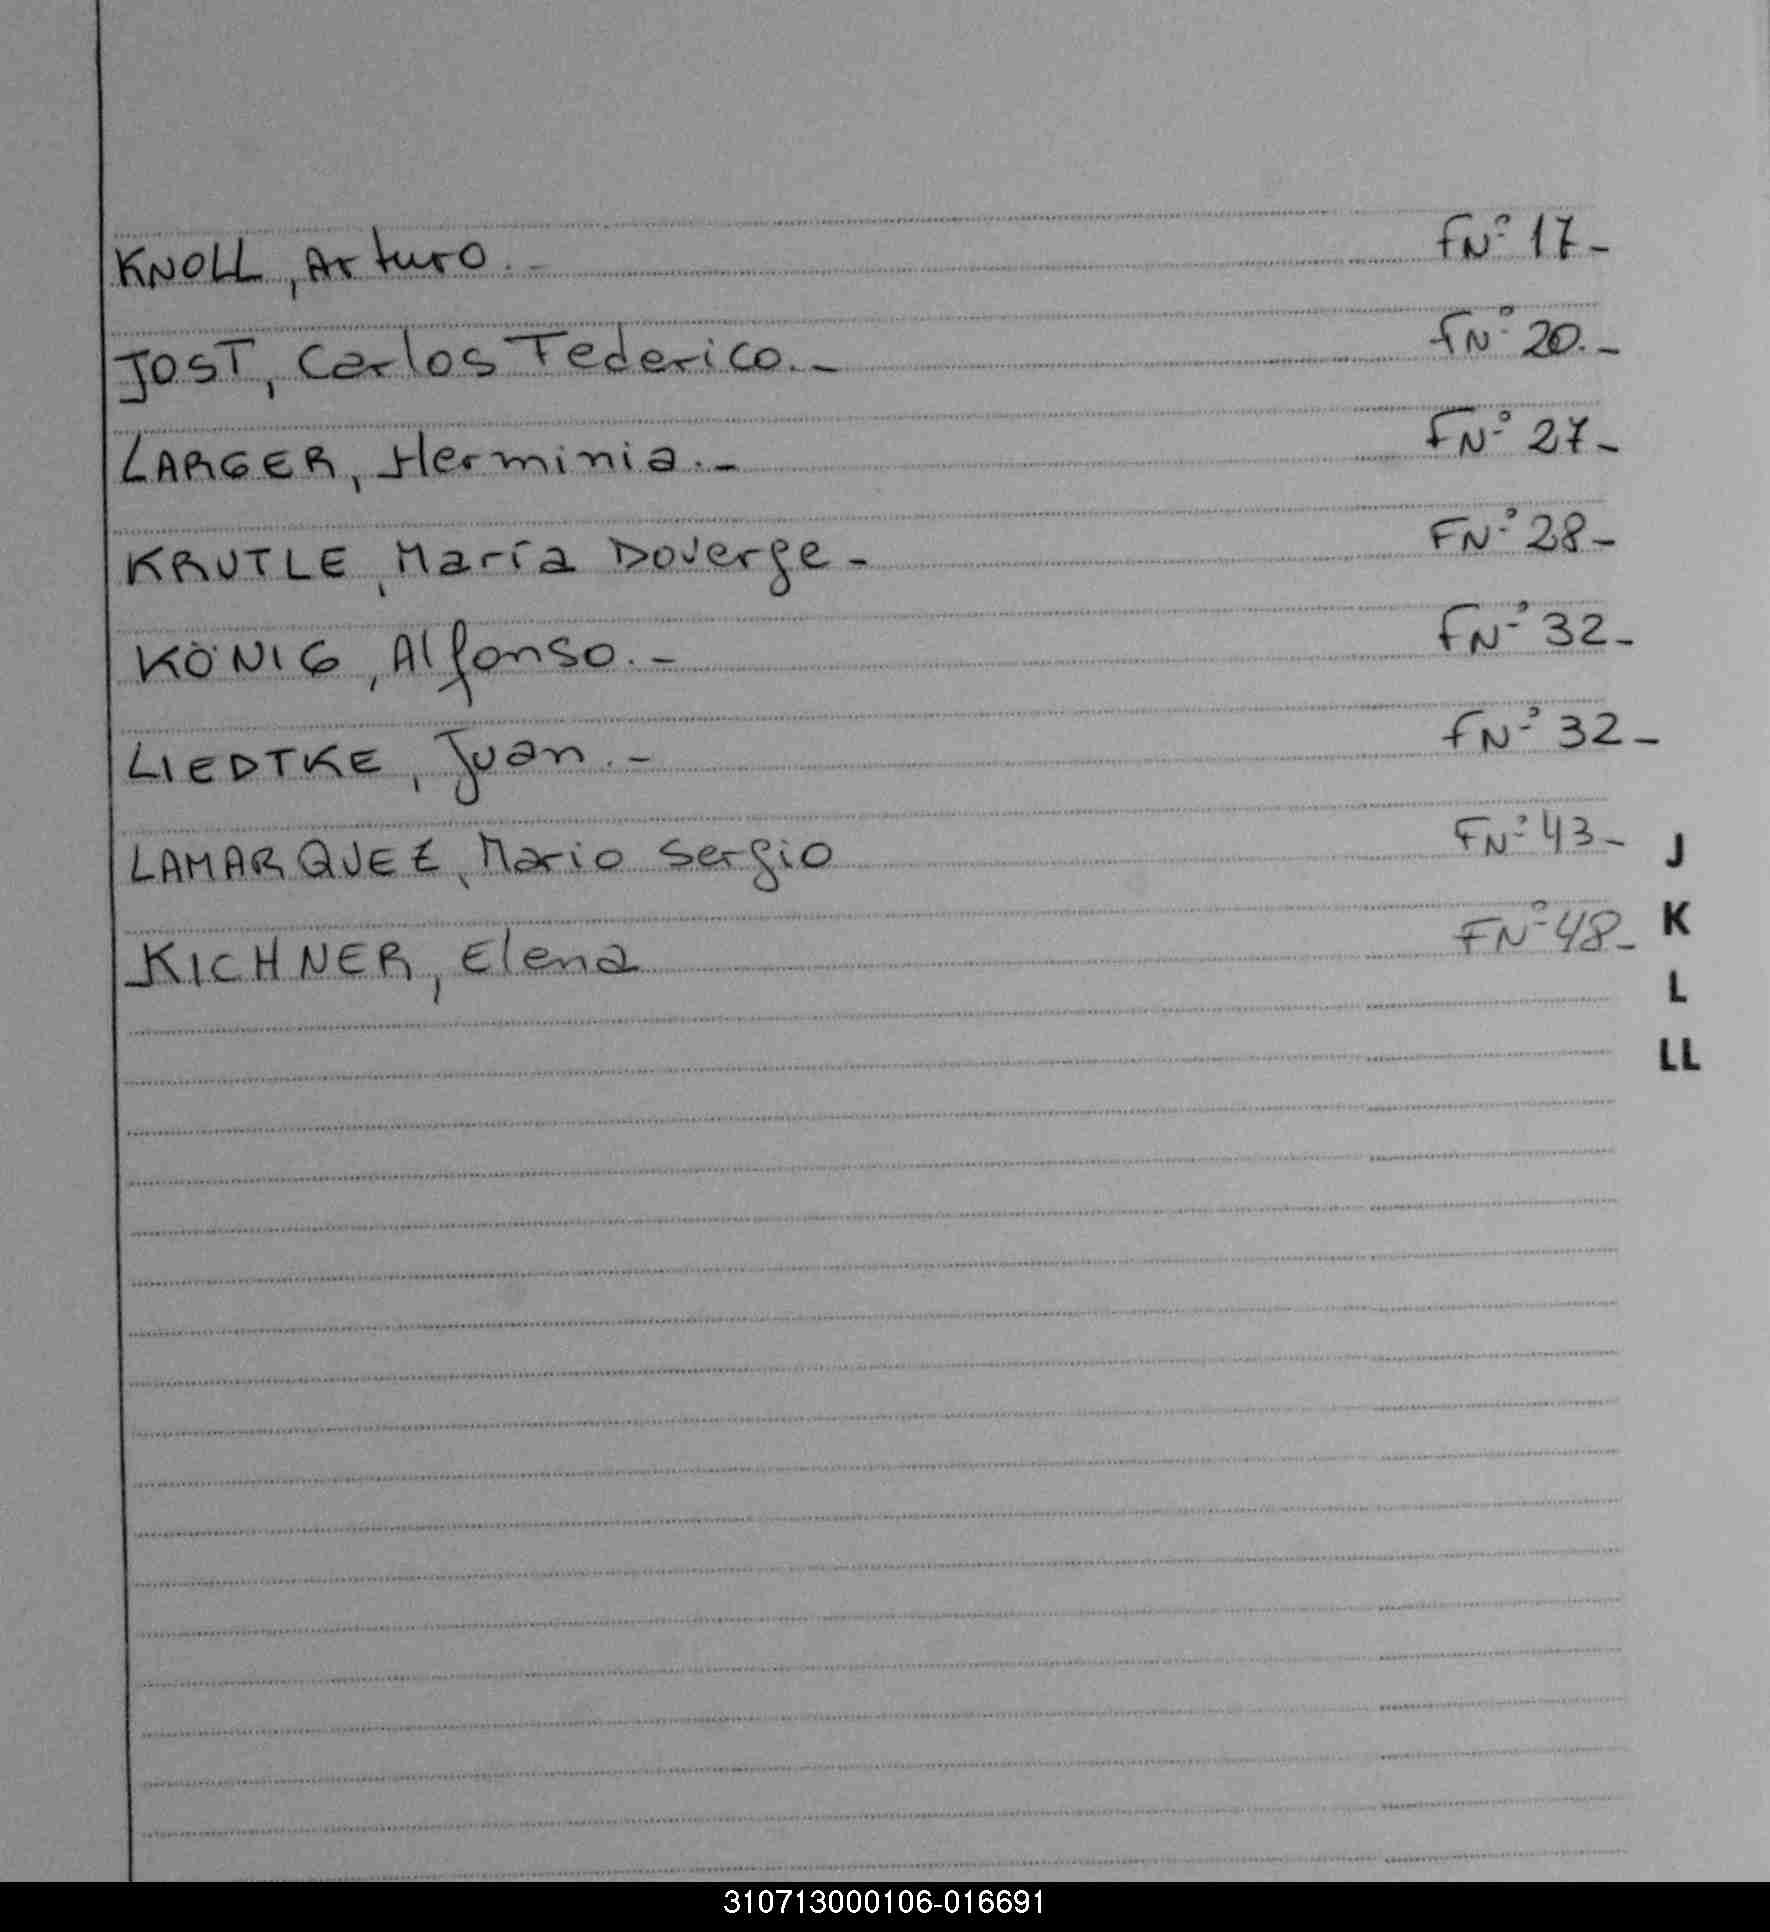 KNOLL, Arturo.- FNº 17-
JOST, Carlos Federico.- FNº 20.-
LARGER, Herminia.- FNº 27-
KRUTLE, María Doverge- FNº 28-
KÖNIG, Alfonso.- FNº 32-
LIEDTKE, Juan.- FNº 32-
LAMARQUEZ, Mario Sergio FNº 43-
KICHNER, Elena FNº 48-
J
K
L
LL
310713000106-016691